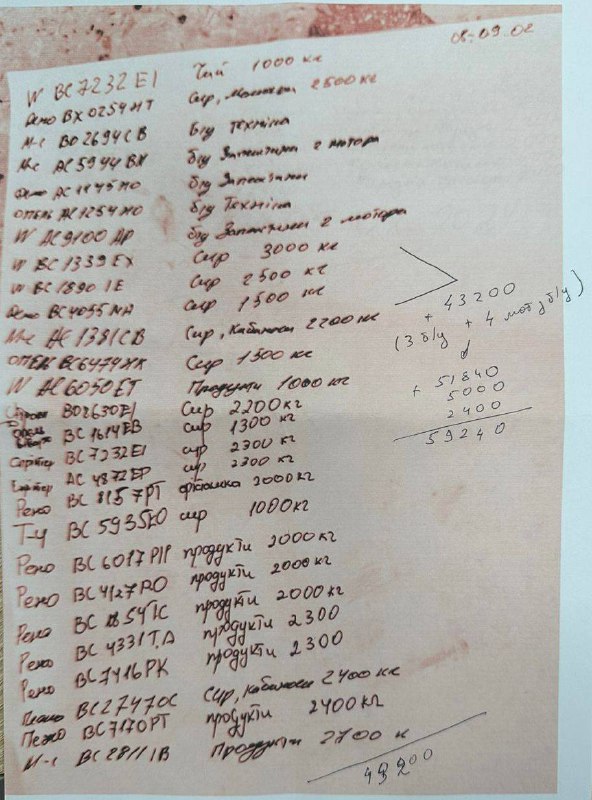 08-09.02
W BC7232EI Чай 1000 кг
Рено BX0254HT Сир, 2500кг
М-с BO2694CB б/у техніка
М-с AC5944BX б/у Запчастини 2 мотора
Рено б/у Запчастини
опель AC1254MO б/у Техніка
W AC9100AP б/у Запчастини 2 мотора
W BC1339EX Сир 3000 кг
W BC1890IE Сир 2500 кг
Рено BC4055NA Сир 1500 кг
М-с AC1381CB Сир, Кабаноси 2200кг
опель BC6474HK Сир 1500 кг
W AC6050ET Продукти 1000 кг
BO2630EI Сир 2200кг
BC1614EB Сир 1300 кг
BC7232EI сир 2300 кг
AC4872EP сир 2300 кг
Рено BC8157PT 2000кг
Т-4 BC5935KO сир 1000кг
Рено BC6017PH продукти 2000кг
Рено BC4127RO продукти 2000кг
Рено BC1854IC продукти 2000кг
Рено BC4331TA продукти 2300
Рено BC7416PK продукти 2300
BC2747OC Сир, кабаноси 2400 кг
Пежо BC7170PT продукти 2400кг
М-с BC2811IB Продукти 2700 к
43200
+ 43200
+
(3 б/у + 4 мот б/у)
51840
+ 5000
2400
59240